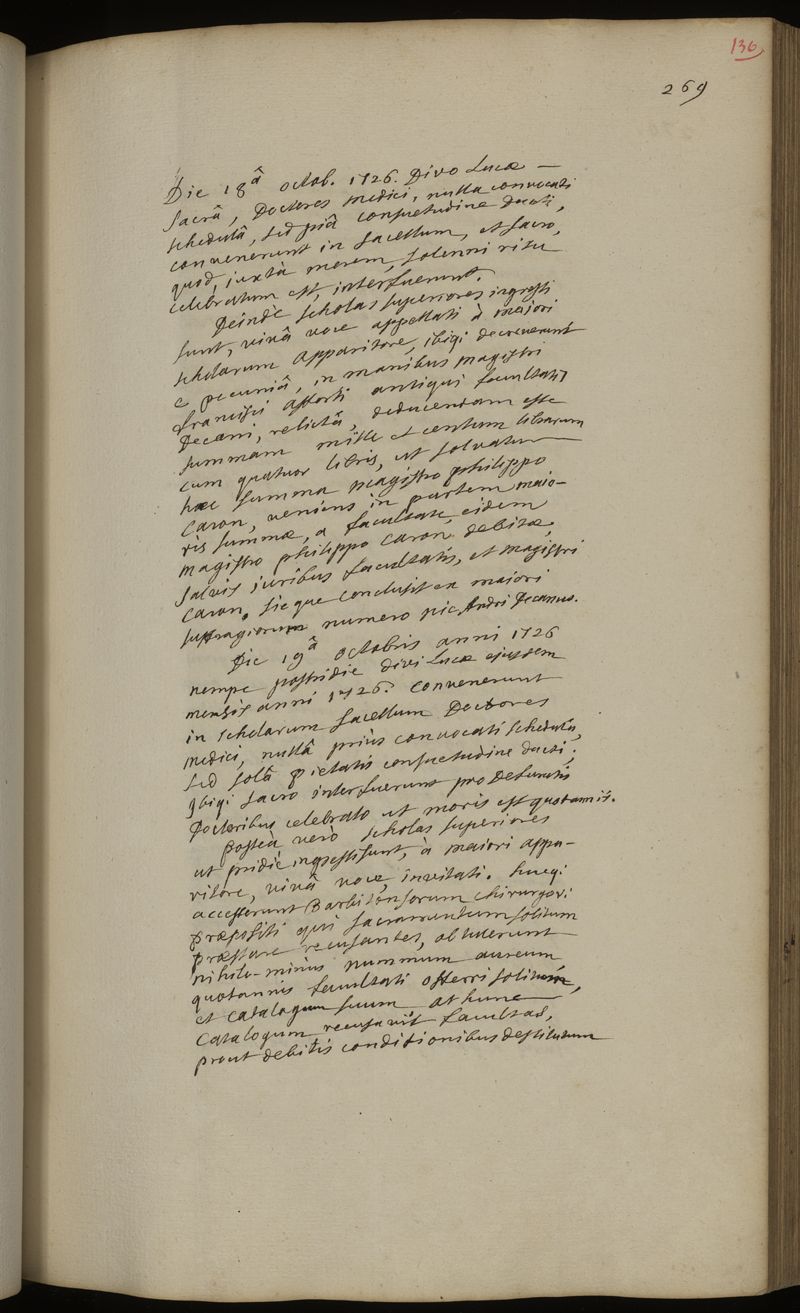 136
269
Die 18â octob. 1726. Divo Lucæ
sacrâ, Doctores medici, nulla convocati
schedulâ, sed piâ consuetudine ducti,
convenerunt in sacellum, et sacro,
quod, juxtà morem, solenni ritu
celebratum est, interfuerunt.
Deindè scholas superiores ingressi
sunt, vivâ voce appellati à majori
scholarum apparitore, ibiqi decreverunt
e pecuniâ, in manibus magistri
francisci afforti antiqui facultatis
Decani, relictâ, deducendam esse
summam mille et centum librarum
cum quatuor libris, ut solvatur
hæc summa magistro philippo
Caron, veniens in partem maio-
ris summæ, a facultate eidem
magistro philippo caron debitæ,
salvis juribus facultatis, et magistri
Caron, sicque conclusit ex maiori
suffragiorum numero nic. Andri Decanus.
Die 19â octobris anni 1726
nempe postridie divi Lucæ ejusdem
mensis anni 1726. convenerunt
in scholarum sacellum Doctores
medici, nullâ priùs convocati schedulâ,
sed solâ pietatis consuetudine ducti;
ibiqi sacro interfuerunt pro Defunctis
Doctoribus celebrato ut moris est quotannis.
posteà verò scholas superiores
ut pridiè ingressi sunt, à maiori appa-
ritore, vivâ voce, invitati. hucqi
accesserunt Barbitonsorum chirurgor:
præpositi qui sacramentum solitum
præstare recusantes, obtulerunt
nihilo-minùs nummum aureum
quotannis facultati offerri solitum,
et catalogum suum at hunc
catalogum recusavit facultas,
prout debitis conditionibus destitutum